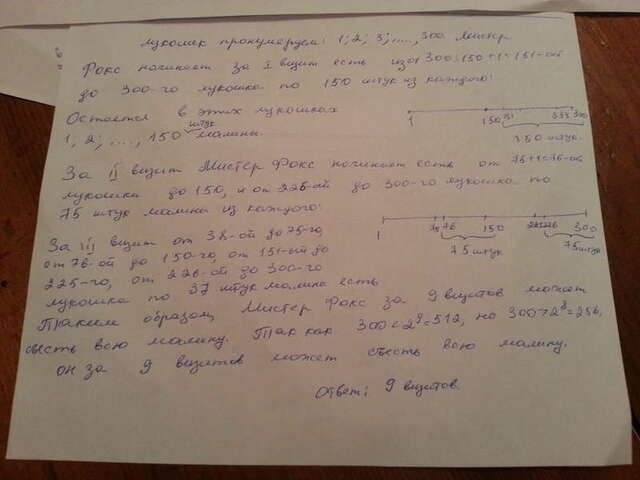 лукошек пронумеруем: 1; 2; 3; ...., 300. Мистер
Фокс начинает за I визит есть из 300:150+1=151-ой
до 300-го лукошка по 150 штук из каждого:
Остаётся в этих лукошках
1; 2; ...., 150 штук малины.
1 150 151 300
150 штук.
За II визит Мистер Фокс начинает есть от 75+1=76-ой
лукошка до 150, и от 226-ой до 300-го лукошка по
75 штук малина из каждого:
1 75 76 150 225 226 300
75 штук 75 штук
За III визит от 38-ой до 75-го,
от 76-ой до 150-го, от 151-ый до
225-го, от 226-ой до 300-го
лукошка по 37 штук малина есть
Таким образом, Мистер Фокс за 9 визитов может
съесть всю малину. Так как 300<2⁹=512, но 300>2⁸=256,
он за 9 визитов может съесть всю малину.
Ответ: 9 визитов.